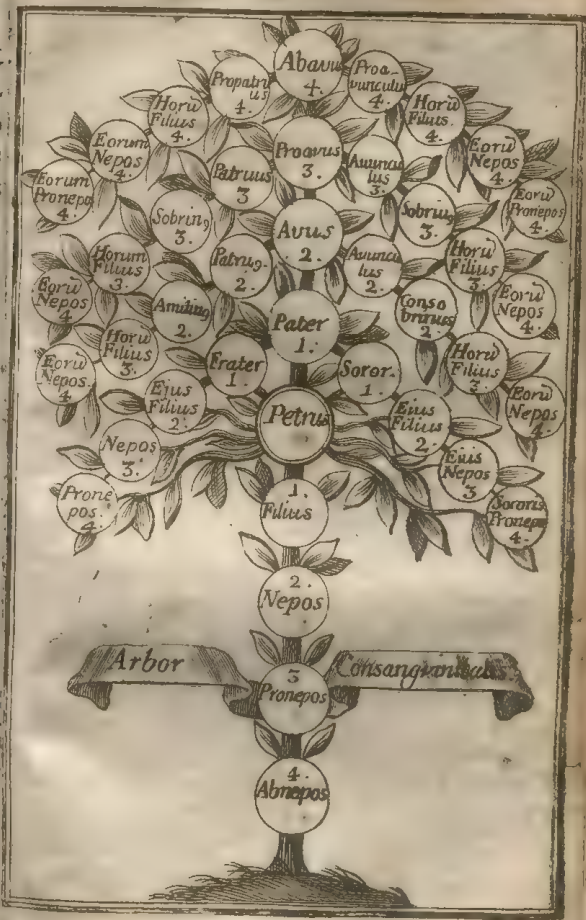 Abavus
4.
Propatru
us
4.
Proa
vunculu
4.
Horũ
Filius
4.
Horũ
Filius.
4.
Eorum
Nepos
4.
Eorũ
Nepos
4.
Eorum
Pronepo
4.
Eorũ
Pronepos
4.
Proavus
3.
Patruus
3
Avuncu
lus
3.
Sobrinꝰ
3.
Sobriuꝰ
3.
Horum
Filius
3.
Horũ
Filius
3.
Eorũ
Nepos
4
Eorũ
Nepos
4.
Avus
2.
Patruꝰ
2.
Avuncu
lus
2.
2.
Conso
brinus
2
Horũ
Filius
3.
Horũ
Filius
3.
Eorũ
Nepos.
4.
Eorũ
Nepos
4.
Pater
1.
Frater
1.
Soror.
1.
Ejus
Filius
2.
Eius
Filius
2.
Nepos
3.
Eius
Nepos
3
Prone
pos.
4.
Sororis
Pronepo
4.
Petrus
1.
Filius
2.
Nepos
Arbor
Consanguinitatis.
3
Pronepos
4.
Abnepos